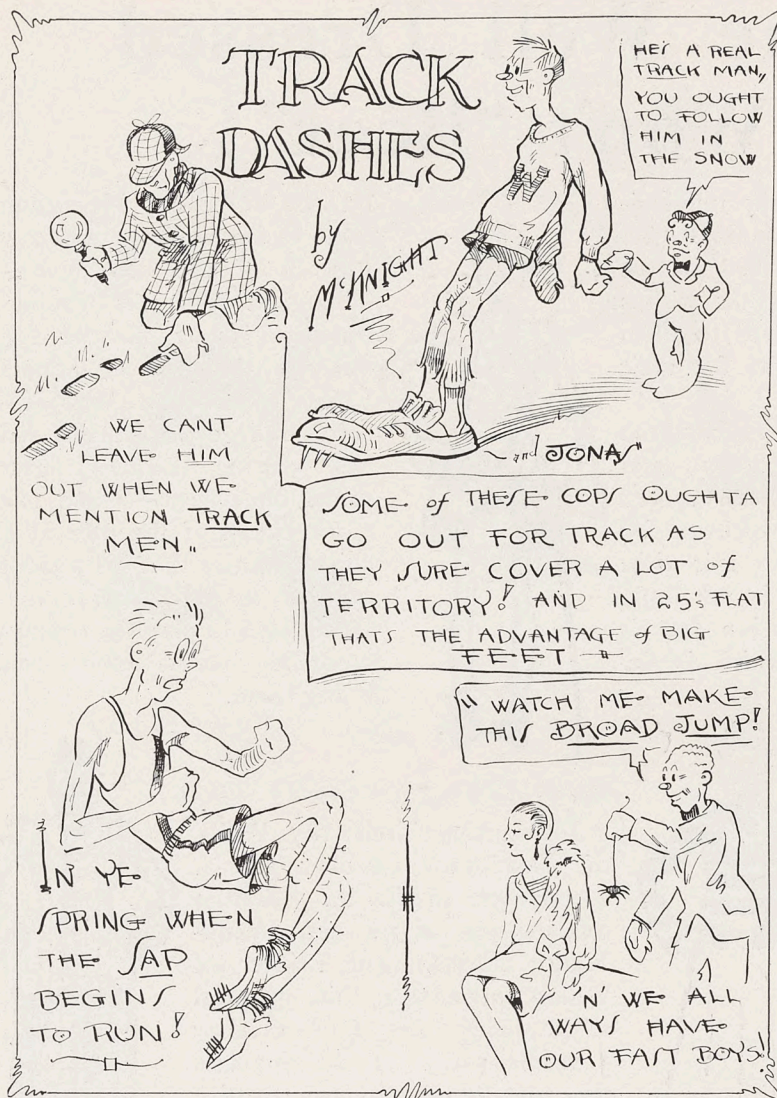 TRACK
DASHES
by
McKNIGHT
and JONAS"
HE'S A REAL
TRACK MAN,,
YOU OUGHT
TO FOLLOW
HIM IN
THE SNOW
W
WE CANT
LEAVE HIM
OUT WHEN WE
MENTION TRACK
MEN,,
SOME of THESE COPS OUGHTA
GO OUT FOR TRACK AS
THEY SURE COVER A LOT of
TERRITORY! AND IN 25's FLAT
THATS THE ADVANTAGE of BIG
FEET
"WATCH ME MAKE
THIS BROAD JUMP!
IN YE
SPRING WHEN
THE SAP
BEGINS
TO RUN!
'N' WE ALL
WAYS HAVE
OUR FAST BOYS!